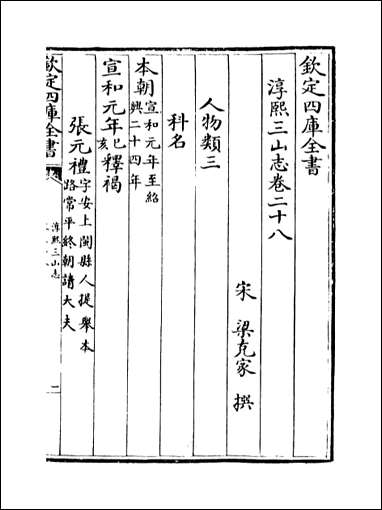 欽定四庫全書
淳熙三山志卷二十八
宋 梁克家 撰
人物類三
科名
本朝宣和元年至紹
興二十四年
宣和元年己
亥釋褐
張元禮字安上閩縣人提舉本
路常平終朝請大夫
欽定四庫全書
淳熙三山志